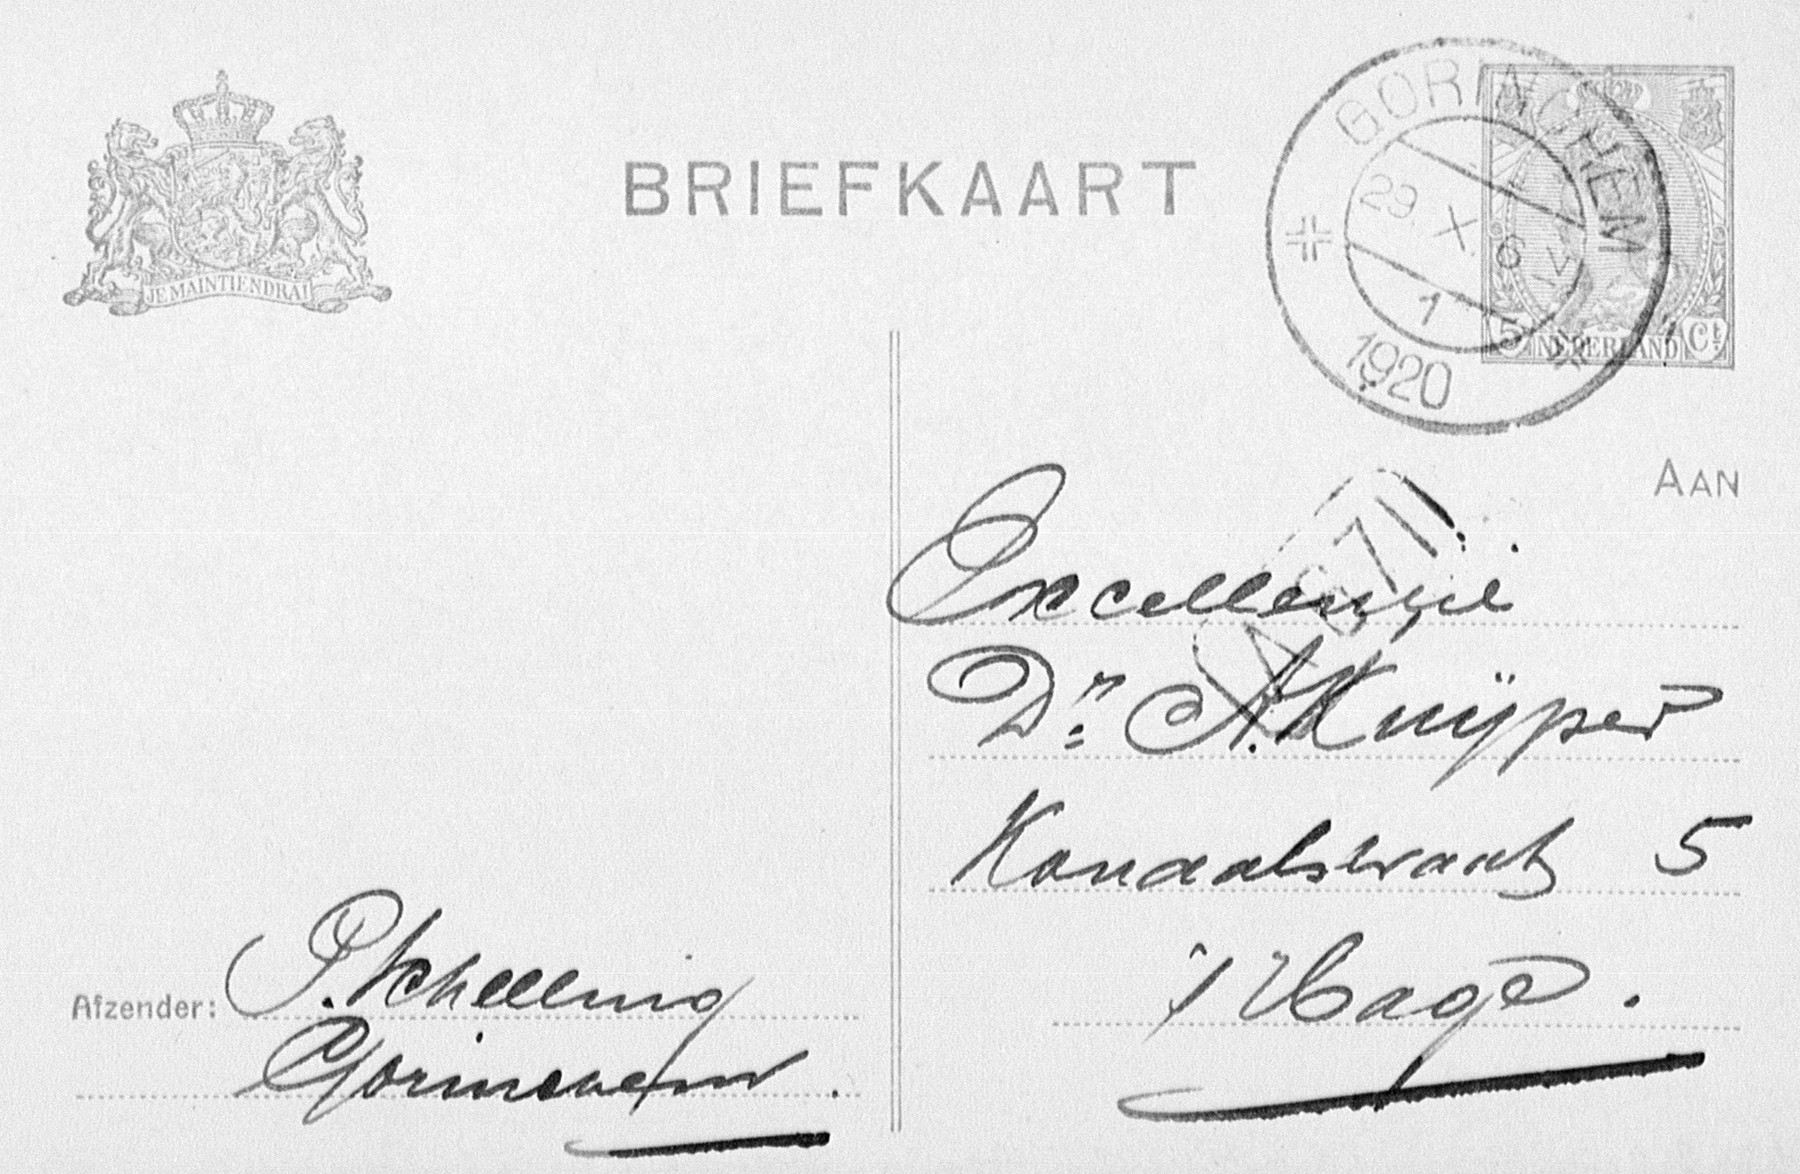 JE MAINTIENDRAI
BRIEFKAART
GORINCHEM
29 X 6
1
1920
5 NEDERLAND Ct.
AAN
Excellentie
Dr. A. Kuÿper
Kanaalstraat 5
's Hage.
Afzender: P. Schelling
Gorinchem.